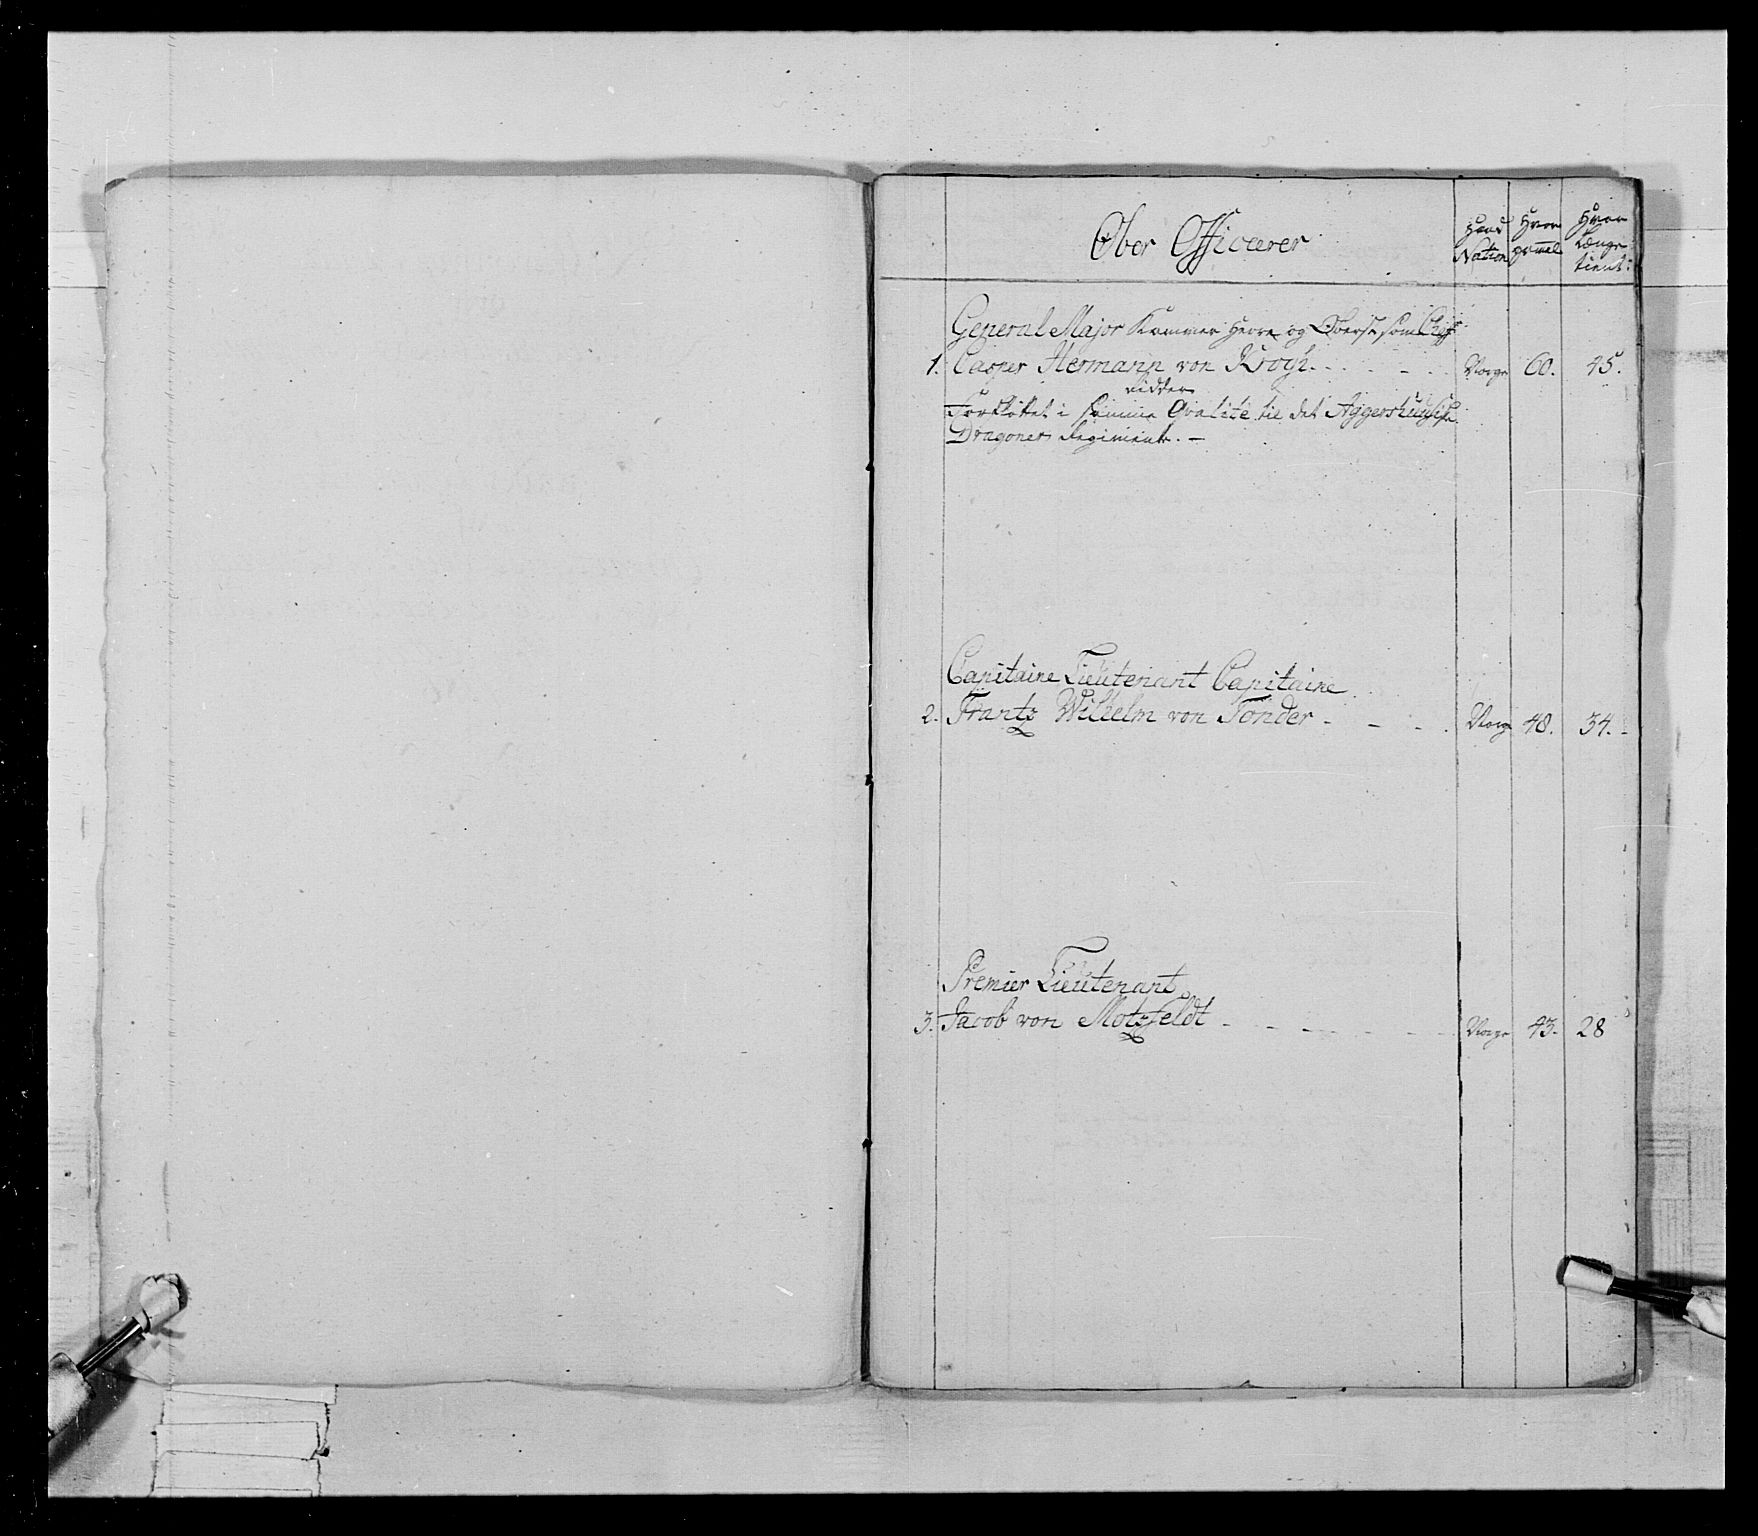 Ober Officerer
Hvad Nation
Hvor gamel
Hvor Længe tient:
General Major Kammer Herre og Oberst som Chef
1. Casper Hermann von Krogh. Norge 60. 45.
ridder
Forflÿttet i samme Qvalité til det Aggershuusiske
Dragoner Regiment. –
Capitaine Lieutenant Capitaine
2. Frantz Wilhelm von Tonder Norge 48. 34.
Premier Lieutenant
3. Jacob von Motzfeldt Norge 43. 28